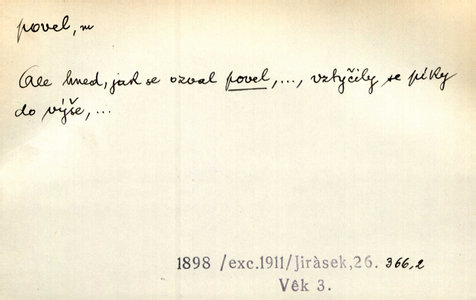 povel, m
Ale hned, jak se ozval povel, ..., vztyčily se píky
do výše, ...
1898 /exc.1911/Jiràsek,26. 366,2
Vêk 3.